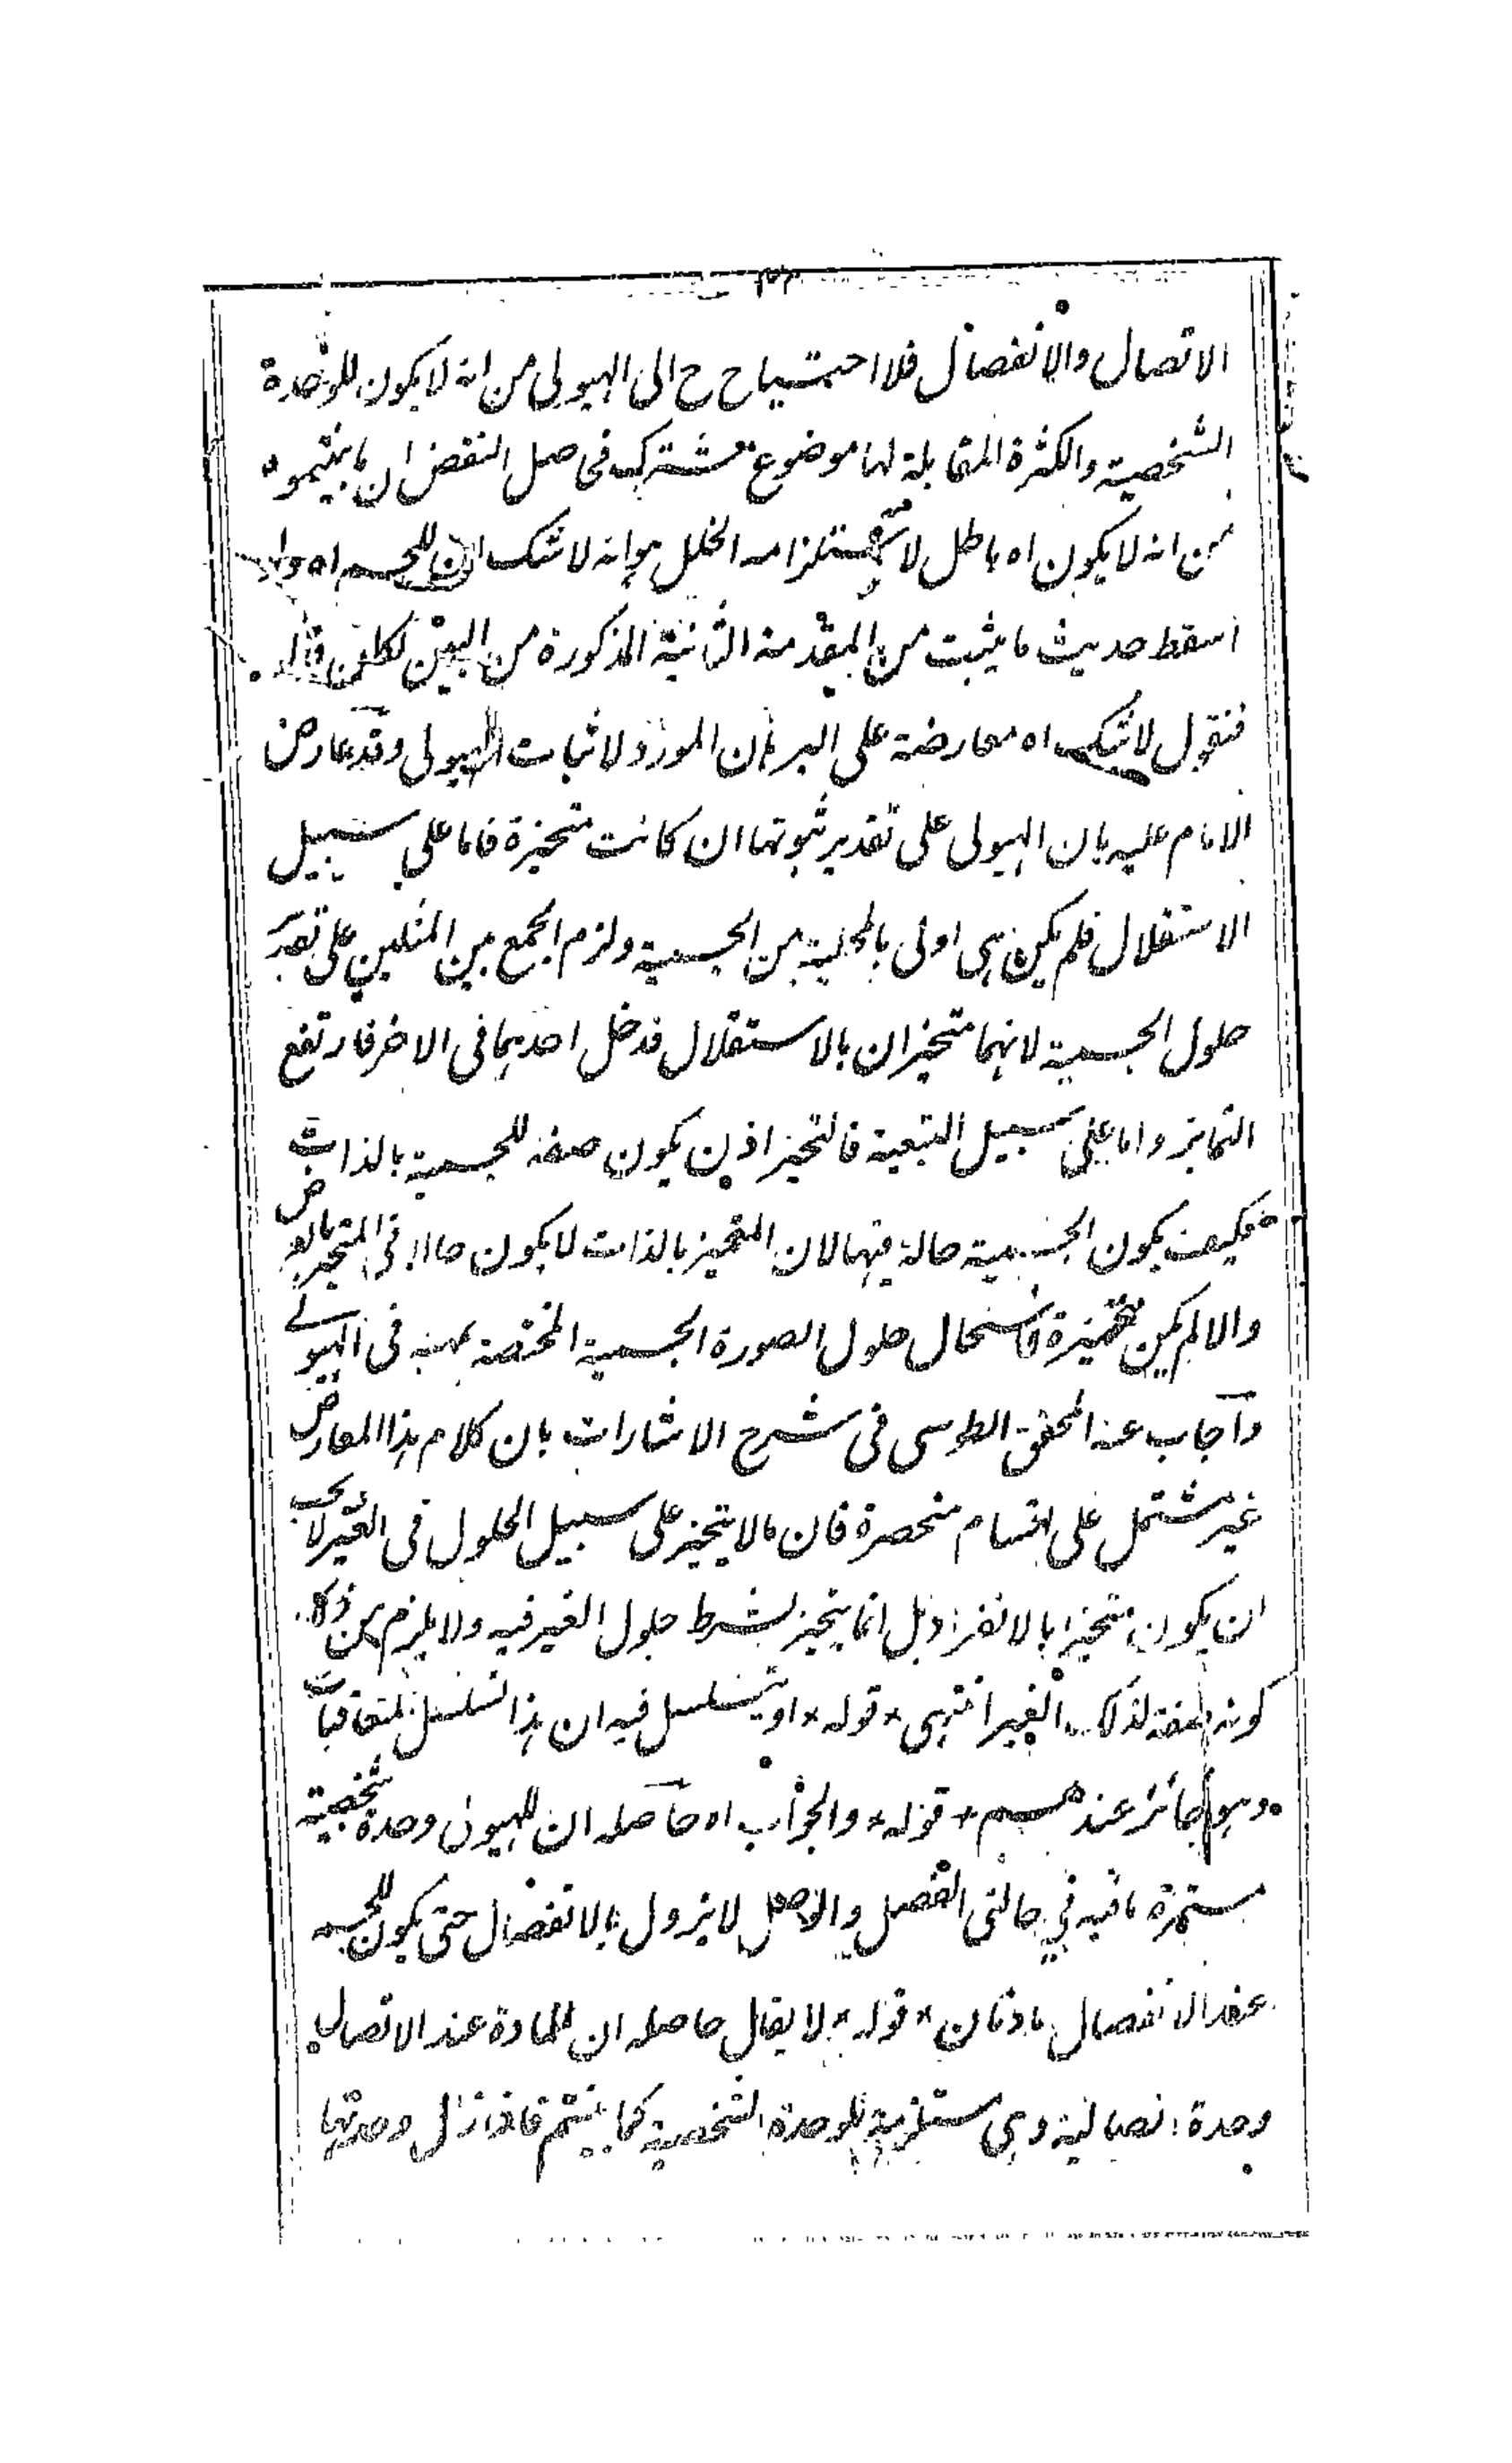 الاتصال والانفصال فلا احتياج ح الى الهيولى من انه لا يكون للوحدة
الشخصية والكثرة المقابلة لها موضوع مشترك فى صل النقض ان ما بينتموه
من انه لا يكون اه باطل لاستلزامه الخلل وانه لا شك ان للجسم اه
اسقط حديث ما يثبت من المقدمة الثانية المذكورة من البين
فنقول لا شك اه معارضة على البرهان المورد لاثبات الهيولى وقد عارض
الامام عليه بان الهيولى على تقدير ثبوتها ان كانت متحيزة فاما على سبيل
الاستقلال فلم يكن هى اولى بالمحلية من الجسمية ولزم الجمع بين المثلين على تقدير
حلول الجسمية لانهما متحيزان بالاستقلال فدخل احديهما فى الاخر فارتفع
التمايز واما على سبيل التبعية فالتحيز اذن يكون صفة للجسمية بالذات
فكيف يكون الجسمية حالة فيها لان المتحيز بالذات لا يكون حالا فى المتحيز بالعرض
والا لم يكن متحيزة فاستحال حلول الصورة الجسمية المختصة بجهة فى الهيولى
واجاب عنه المحقق الطوسى فى شرح الاشارات بان كلام هذا المعارض
غير مشتمل على اقسام منحصرة فان ما لا يتحيز على سبيل الحلول فى الغير لا يجب
ان يكون متحيزا بالانفراد بل انما يتحيز بشرط حلول الغير فيه ولا يلزم من ذلك
كونه صفة لذلك الغير انتهى * قوله * او يتسلسل فيه ان هذا تسلسل المتعاقبات
وهو جائز عندهم * قوله * والجواب اه حاصله ان للهيولى وحدة شخصية
مستمرة باقيه فى حالتى الفصل والوصل لا يزول بالانفصال حتى يكون للجسم
عند الانفصال مادتان * قوله * لا يقال حاصله ان للمادة عند الاتصال
وحدة اتصالية وهى مستلزمة للوحدة الشخصية كما بينتم فاذا زال وحدتها